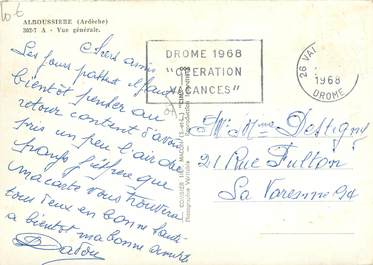 10€
ALBOUSSIERE (Ardèche)
302-7 A - Vue générale.
Chers amis
Les jours passent il faut
bientôt penser au
retour content d'avoir
pris un peu l'air du
pays j'espère que
ma carte vous trouvera
tous deux en bonne santé
a bientôt ma bonne amie
DROME 1968
"OPERATION
VACANCES"
26 VAL
1968
DROME
Mr Mme
21 Rue Fulton
La Varenne 94